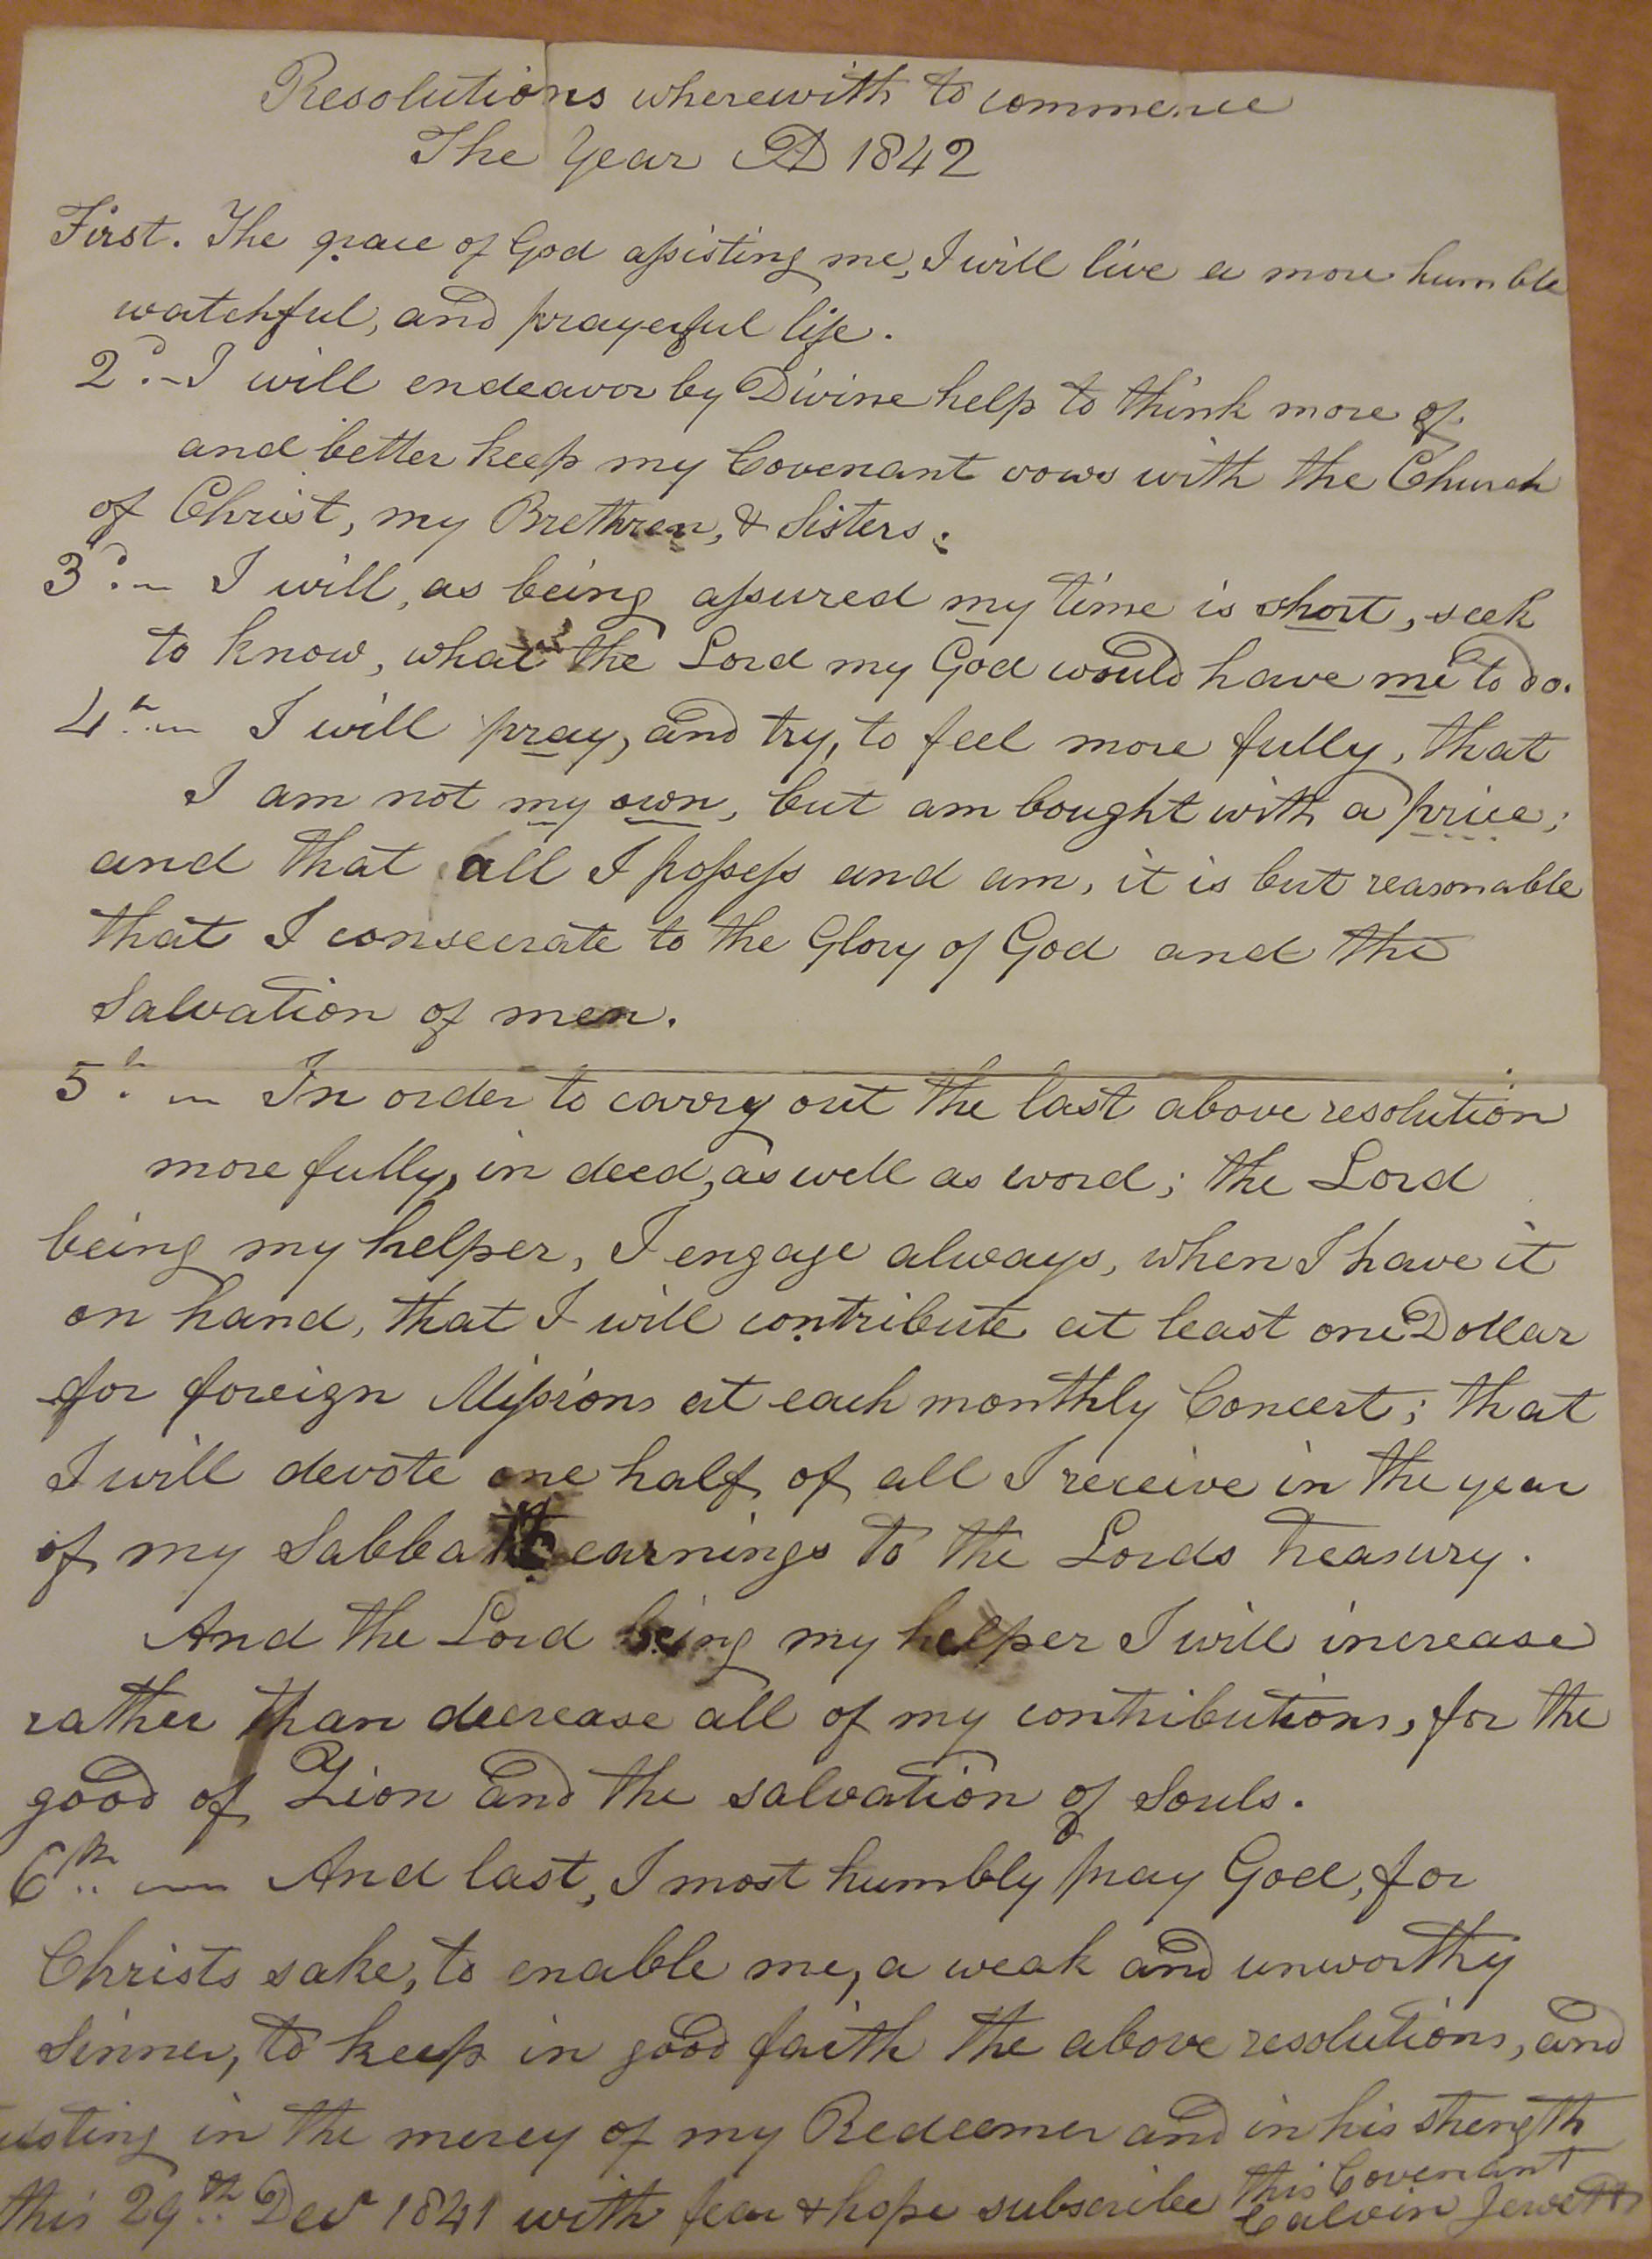 Resolutions wherewith to commence
The Year AD 1842
First. The grace of God aſsisting me, I will live a more humble
watchful, and prayerful life.
2d.- I will endeavor by Divine help to think more of
and better keep my Covenant vows with the Church
of Christ, my Brethren, & Sisters.
3d.- I will, as being aſsured my time is short, seek
to know, what the Lord my God would have me to do.
4th.- I will pray, and try, to feel more fully, that
I am not my own, but am bought with a price;
and that all I poſseſs and am, it is but reasonable
that I consecrate to the Glory of God and the
Salvation of men.
5th.- In order to carry out the last above resolution
more fully, in deed, as well as word; the Lord
being my helper, I engage always, when I have it
on hand, that I will contribute at least one Dollar
for foreign Miſsions at each monthly Concert; that
I will devote one half of all I receive in the year
of my Sabbath earnings to the Lords Treasury.
And the Lord being my helper I will increase
rather than decrease all of my contributions, for the
good of Zion and the salvation of Souls.
6th.- And last, I most humbly pray God, for
Christs sake, to enable me, a weak and unworthy
Sinner, to keep in good faith the above resolutions, and
usting in the mercy of my Redeemer and in his strength
this 29th Decr 1841 with fear & hope subscribe this Covenant
Calvin Jewett